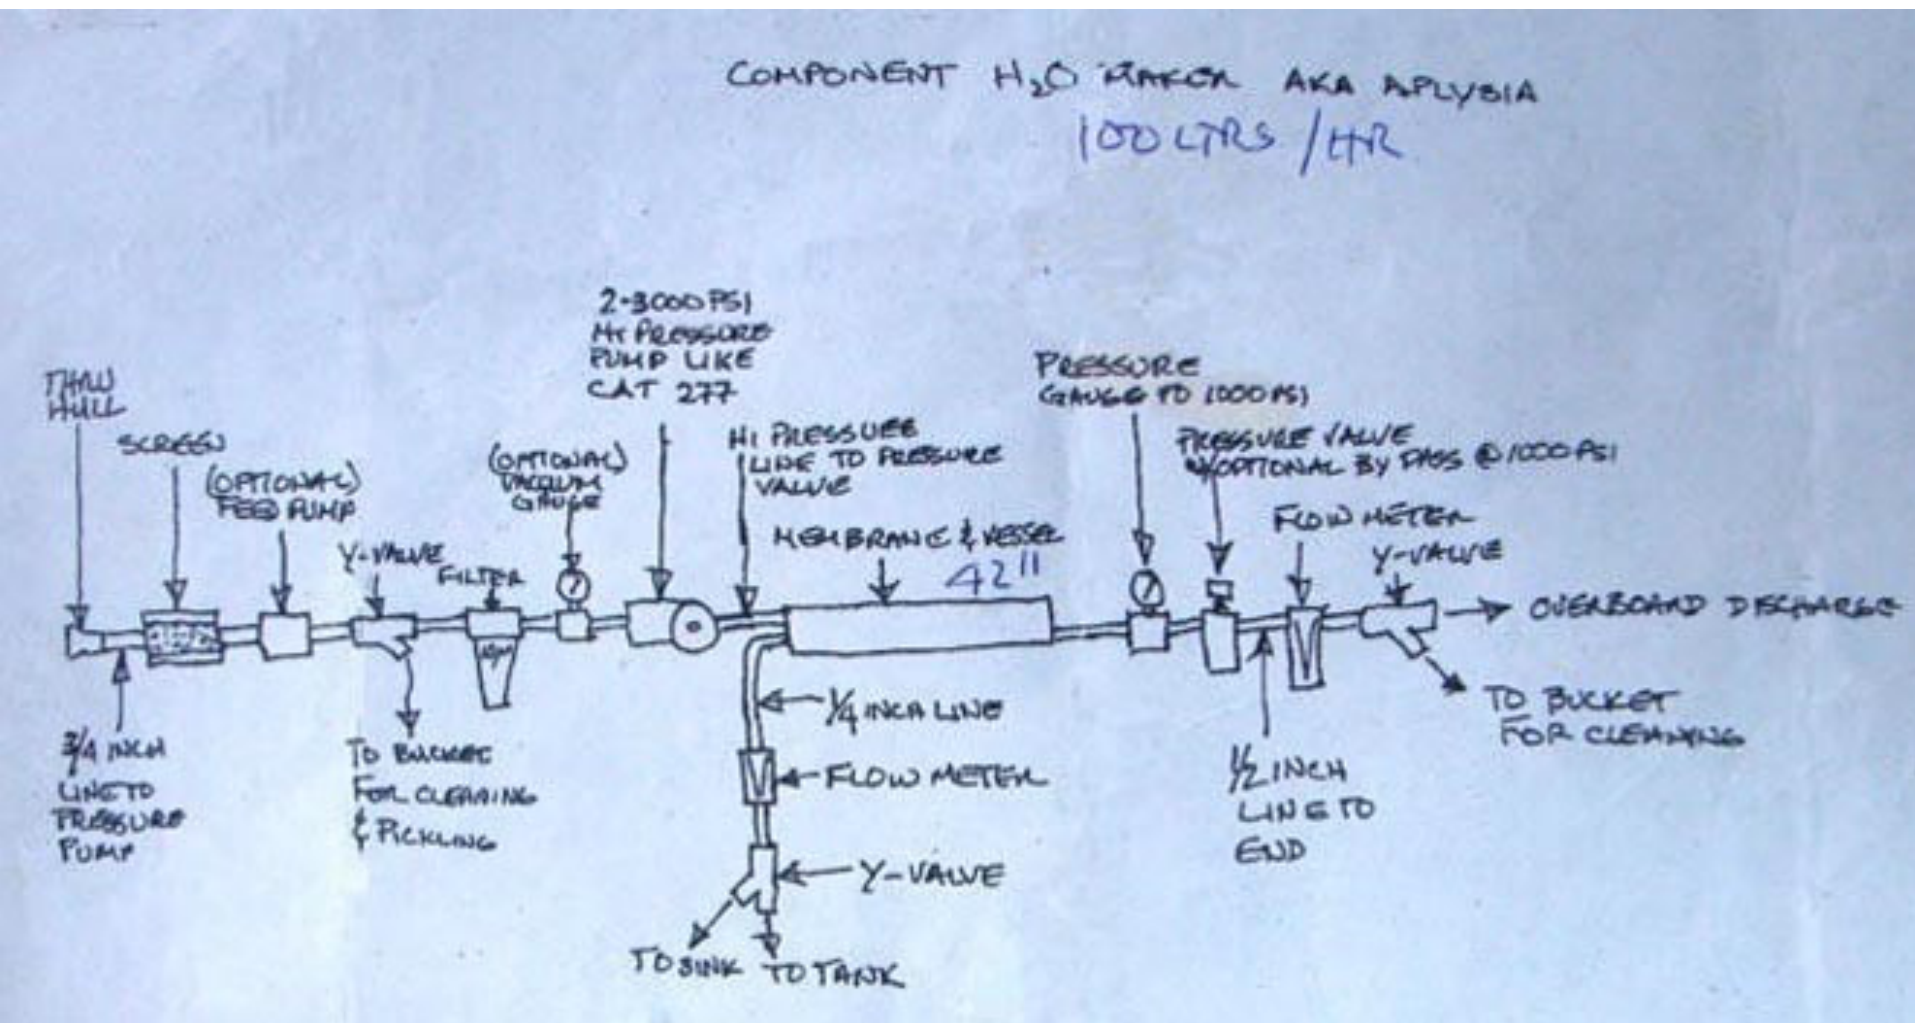 COMPONENT H₂O MAKER AKA APLYSIA
100 LTRS / HR
2-3000 PSI
HI PRESSURE
PUMP LIKE
CAT 277
THRU
HULL
SCREEN
(OPTIONAL)
FEED PUMP
Y-VALVE
FILTER
(OPTIONAL)
VACUUM
GAUGE
HI PRESSURE
LINE TO PRESSURE
VALVE
MEMBRANE & VESSEL
42"
PRESSURE
GAUGE TO 1000 PSI
PRESSURE VALVE
W/OPTIONAL BY PASS @ 1000 PSI
FLOW METER
Y-VALVE
OVERBOARD DISCHARGE
TO BUCKET
FOR CLEANING
3/4 INCH
LINE TO
PRESSURE
PUMP
TO BUCKET
FOR CLEANING
& PICKLING
1/4 INCH LINE
FLOW METER
Y-VALVE
TO SINK
TO TANK
1/2 INCH
LINE TO
END